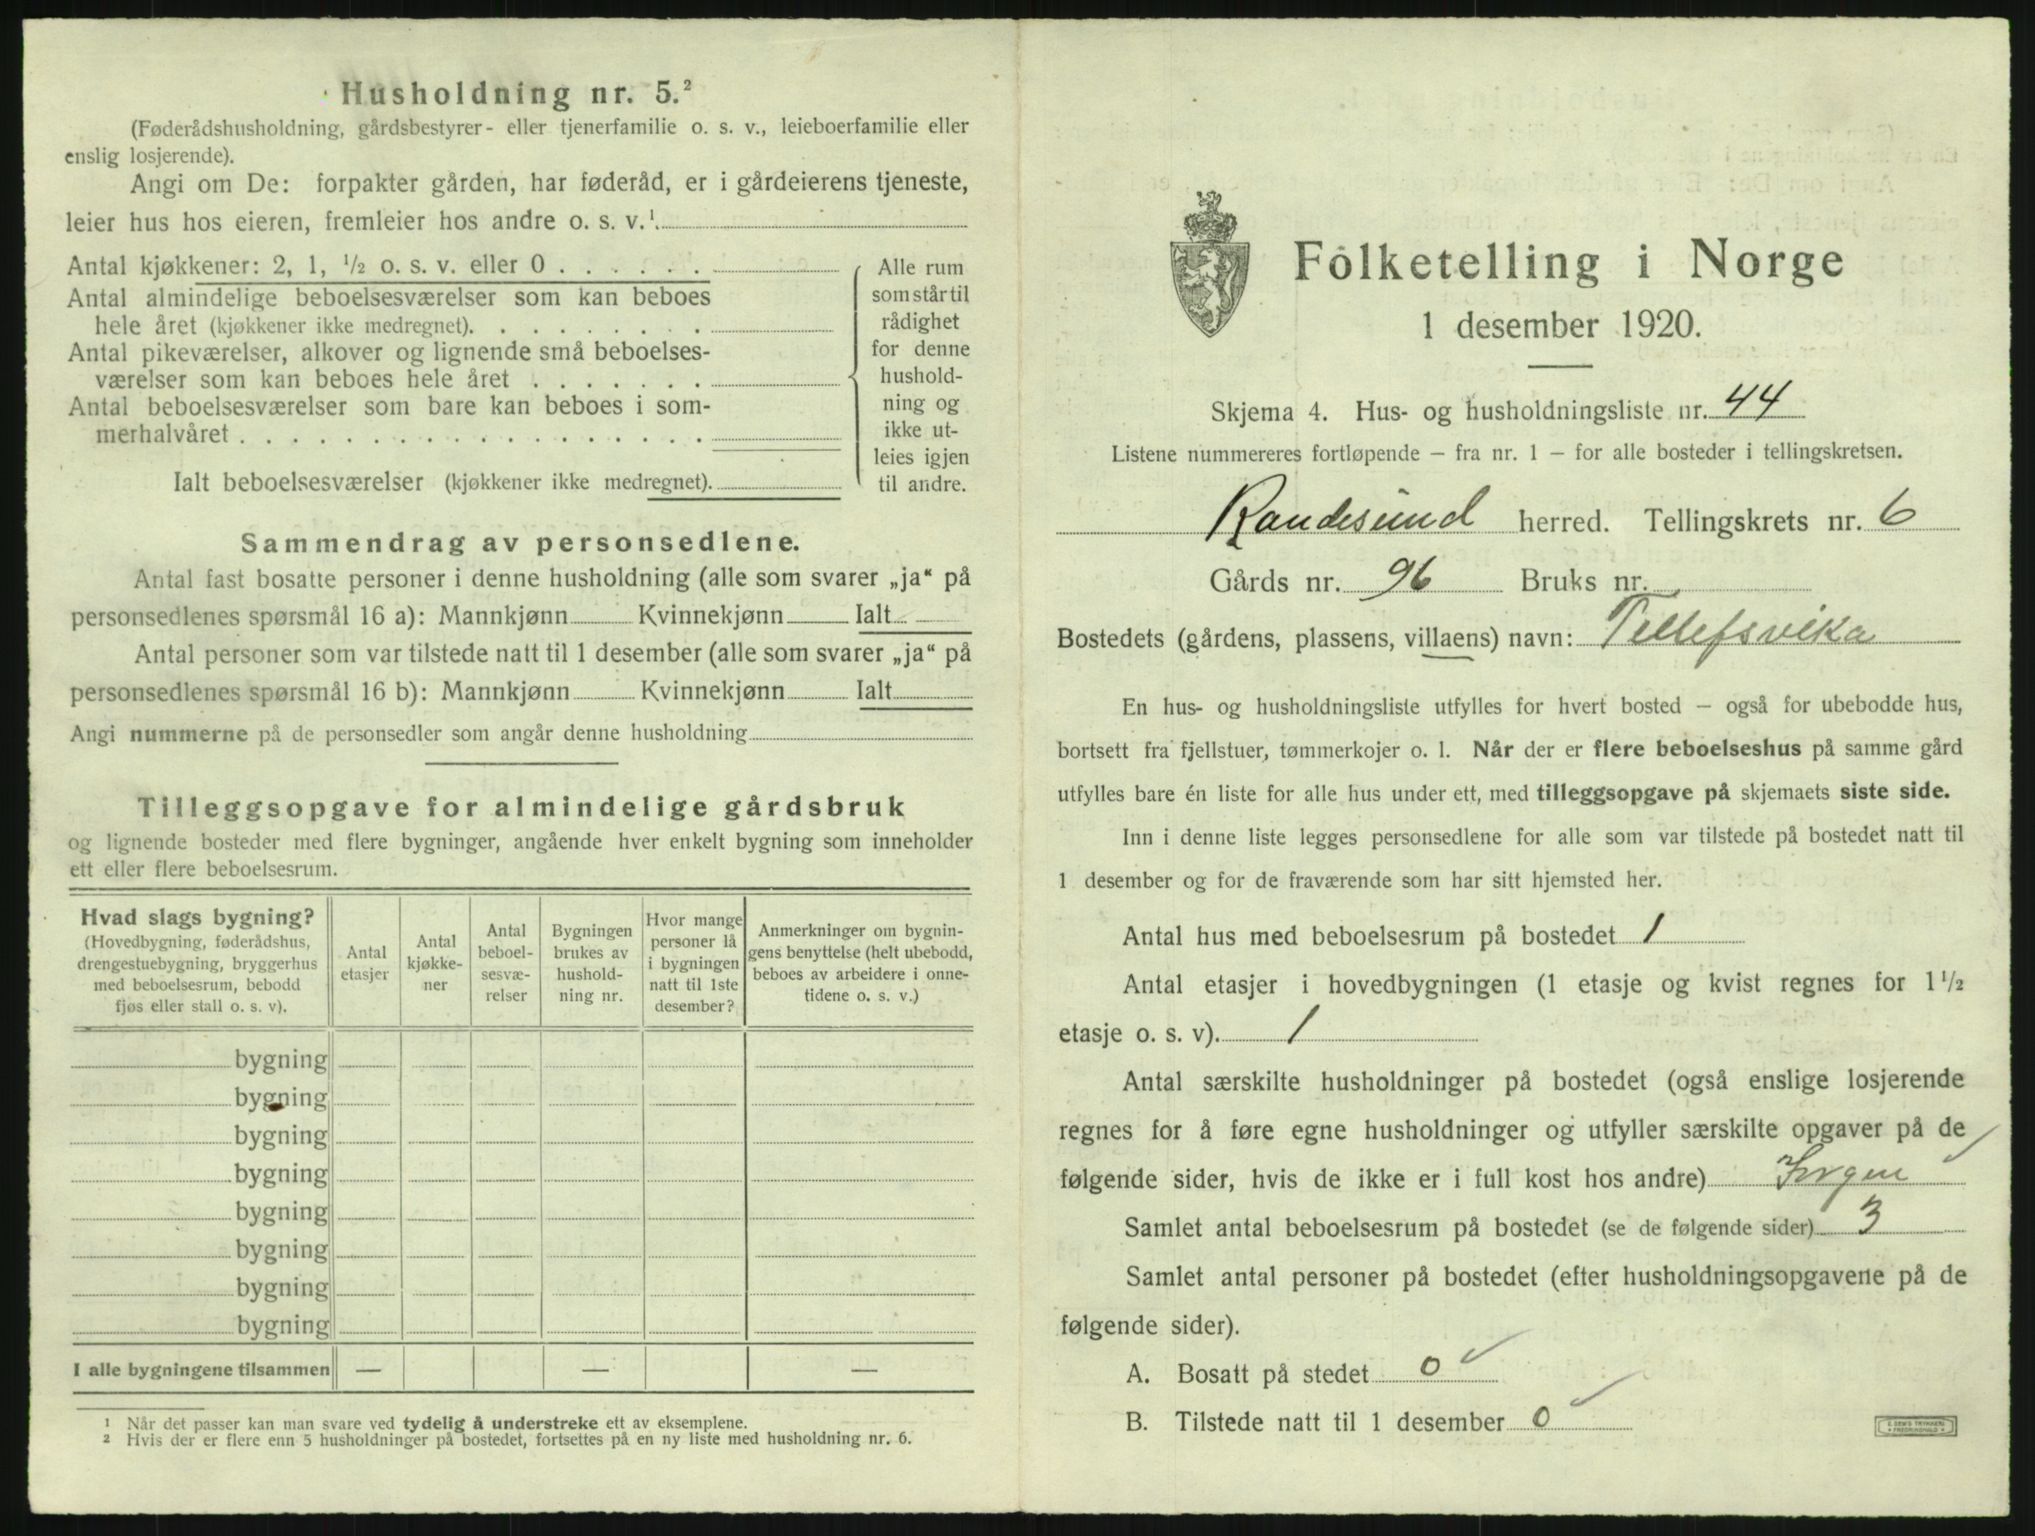 Husholdning nr. 5.²
(Føderådshusholdning, gårdsbestyrer- eller tjenerfamilie o. s. v., leieboerfamilie eller
enslig losjerende).
Angi om De: forpakter gården, har føderåd, er i gårdeierens tjeneste,
leier hus hos eieren, fremleier hos andre o. s. v.¹
Antal kjøkkener: 2, 1, ½ o. s. v. eller 0 . . . . . .
Antal almindelige beboelsesværelser som kan beboes
hele året (kjøkkener ikke medregnet). . . . . . . . .
Antal pikeværelser, alkover og lignende små beboelses-
værelser som kan beboes hele året . . . . . . .
Antal beboelsesværelser som bare kan beboes i som-
merhalvåret . . . . . . . . . . . . . . . . . .
Ialt beboelsesværelser (kjøkkener ikke medregnet).
Alle rum
som står til
rådighet
for denne
hushold-
ning og
ikke ut-
leies igjen
til andre.
Sammendrag av personsedlene.
Antal fast bosatte personer i denne husholdning (alle som svarer „ja“ på
personsedlenes spørsmål 16 a): Mannkjønn Kvinnekjønn Ialt
Antal personer som var tilstede natt til 1 desember (alle som svarer „ja“ på
personsedlenes spørsmål 16 b): Mannkjønn Kvinnekjønn Ialt
Angi nummerne på de personsedler som angår denne husholdning
Tilleggsopgave for almindelige gårdsbruk
og lignende bosteder med flere bygninger, angående hver enkelt bygning som inneholder
ett eller flere beboelsesrum.
Hvad slags bygning?
(Hovedbygning, føderådshus,
drengestuebygning, bryggerhus
med beboelsesrum, bebodd
fjøs eller stall o. s. v).
Antal
etasjer
Antal
kjøkke-
ner
Antal
beboel-
sesvæ-
relser
Bygningen
brukes av
hushold-
ning nr.
Hvor mange
personer lå
i bygningen
natt til 1ste
desember?
Anmerkninger om bygnin-
gens benyttelse (helt ubebodd,
beboes av arbeidere i onne-
tidene o. s. v.)
bygning
bygning
bygning
bygning
bygning
bygning
bygning
bygning
I alle bygningene tilsammen — — —
¹ Når det passer kan man svare ved tydelig å understreke ett av eksemplene.
² Hvis der er flere enn 5 husholdninger på bostedet, fortsettes på en ny liste med husholdning nr. 6.
Folketelling i Norge
1 desember 1920.
Skjema 4. Hus- og husholdningsliste nr. 44
Listene nummereres fortløpende — fra nr. 1 — for alle bosteder i tellingskretsen.
Randesund herred. Tellingskrets nr. 6
Gårds nr. 96 Bruks nr.
Bostedets (gårdens, plassens, villaens) navn: Tellefsvika
En hus- og husholdningsliste utfylles for hvert bosted — også for ubebodde hus,
bortsett fra fjellstuer, tømmerkojer o. l. Når der er flere beboelseshus på samme gård
utfylles bare én liste for alle hus under ett, med tilleggsopgave på skjemaets siste side.
Inn i denne liste legges personsedlene for alle som var tilstede på bostedet natt til
1 desember og for de fraværende som har sitt hjemsted her.
Antal hus med beboelsesrum på bostedet 1
Antal etasjer i hovedbygningen (1 etasje og kvist regnes for 1½
etasje o. s. v). 1
Antal særskilte husholdninger på bostedet (også enslige losjerende
regnes for å føre egne husholdninger og utfyller særskilte opgaver på de
følgende sider, hvis de ikke er i full kost hos andre) Ingen
Samlet antal beboelsesrum på bostedet (se de følgende sider) 3
Samlet antal personer på bostedet (efter husholdningsopgavene på de
følgende sider).
A. Bosatt på stedet 0
B. Tilstede natt til 1 desember 0